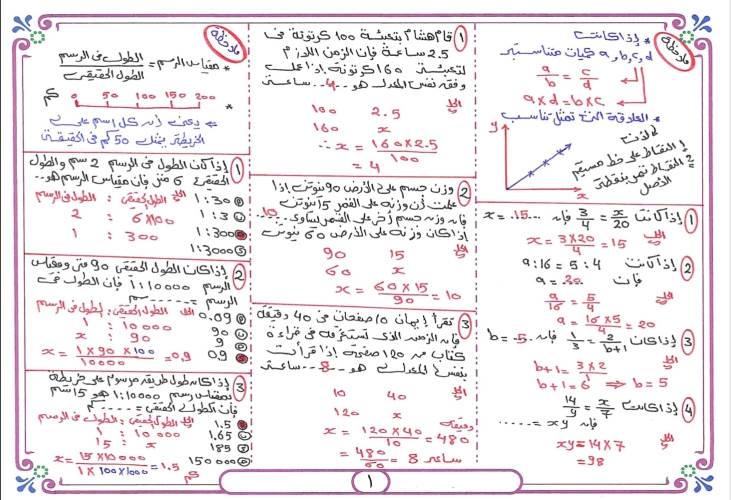 ملاحظة
* إذا كانت
a, b, c, d كميات متناسبة
a/b = c/d
a×d = b×c
* العلاقة التى تمثل تناسب
لأن
1 النقاط على خط مستقيم
2 النقاط تمر بنقطة الأصل
y
x
1 إذا كانت x/20 = 3/4 فإن x = ..15..
الحل
x = 3×20/4 = 15
2 إذا كانت a:16 = 5:4
فإن a = ..20..
الحل
a/16 = 5/4
a = 16×5/4 = 20
3 إذا كان 1/3 = 2/b+1 فإن b = ..5..
الحل
b+1 = 3×2/1
b+1 = 6 ⇒ b = 5
4 إذا كانت 14/y = x/7
فإن xy = ......
الحل
xy = 14×7
= 98
1 قام هشام بتعبئة 100 كرتونة فى
2.5 ساعة فإن الزمن اللازم
لتعبئة 160 كرتونة إذا عمل
وفق نفس المعدل هو ..4.. ساعة
الحل
100 2.5
160 x
∴ x = 160×2.5/100
= 4
2 وزن جسم على الأرض 90 نيوتن إذا
علمت أن وزنه على القمر 15 نيوتن
فإن وزن جسم آخر على القمر يساوى ..10..
إذا كان وزنه على الأرض 60 نيوتن
الحل
90 15
60 x
x = 60×15/90 = 10
3 تقرأ إيمان 10 صفحات فى 40 دقيقة
فإن الزمن الذى تستغرقه فى قراءة
كتاب من 120 صفحة إذا قرأت
بنفس المعدل هو ..8.. ساعة
الحل
10 40
120 x
x = 120×40/10 = 480 دقيقة
= 480/60 = 8 ساعة
ملاحظة
* مقياس الرسم = الطول فى الرسم/الطول الحقيقى
0 50 100 150 200 كم
*
يعنى أن كل 1 سم على
الخريطة يمثل 50 كم فى الحقيقة
1 إذا كان الطول فى الرسم 2 سم والطول
الحقيقى 6 متر فإن مقياس الرسم هو..
1:30
1:3
1:300
1:3000
الحل
الطول الحقيقى : الطول فى الرسم
2 : 6×100
1 : 300
2 إذا كان الطول الحقيقى 90 متر ومقياس
الرسم 1:10000 فإن الطول فى
الرسم ------ سم
0.09
90
9
0.9
الحل
الطول الحقيقى : الطول فى الرسم
1 : 10000
x : 90
x = 1×90×100/10000 = 0.9
3 إذا كان طول طريق مرسوم على خريطة
بمقياس رسم 1:10000 هو 15 سم
فإن الطول الحقيقى = ..... كم
1.5
1.65
185
150000
الحل
الطول الحقيقى : الطول فى الرسم
1 : 10000
15 : x
x = 15×10000/1×100×1000 = 1.5 كم
1